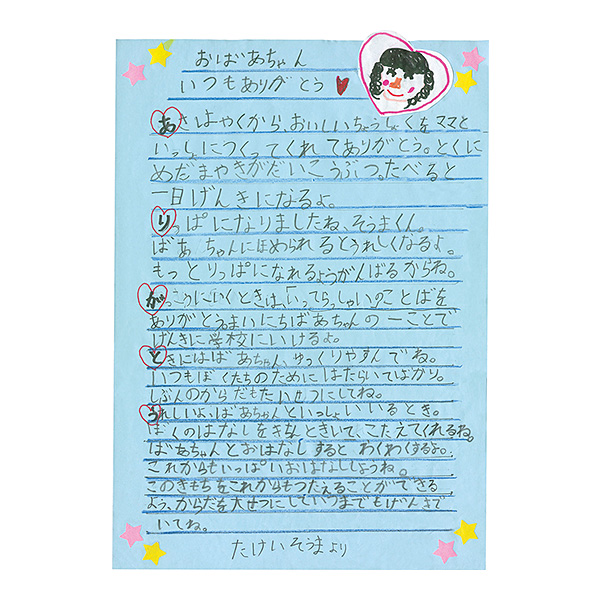 おばあちゃん
いつもありがとう
あさはやくから、おいしいちょうしょくをママと
いっしょにつくってくれてありがとう。とくに
めだまやきがだいこうぶつ。たべると
一日げんきになるよ。
りっぱになりましたね、そうまくん。
ばあちゃんにほめられるとうれしくなるよ。
もっとりっぱになれるようがんばるからね。
がっこうにいくときは、「いってらっしゃい」のことばを
ありがとうまいにちばあちゃんの一ことで
げんきに学校にいけるよ。
ときにはばあちゃん、ゆっくりやすんでね。
いつもぼくたちのためにはたらいてばかり。
じぶんのからだもたいせつにしてね。
うれしいよ、ばあちゃんといっしょにいるとき。
ぼくのはなしをきちんときいて、こたえてくれるね。
ばあちゃんとおはなしするとわくわくするよ。
これからもいっぱいおはなししようね。
このきもちをこれからもつたえることができる
よう、からだを大せつにしていつまでもげんきで
いてね。
たけいそうまより